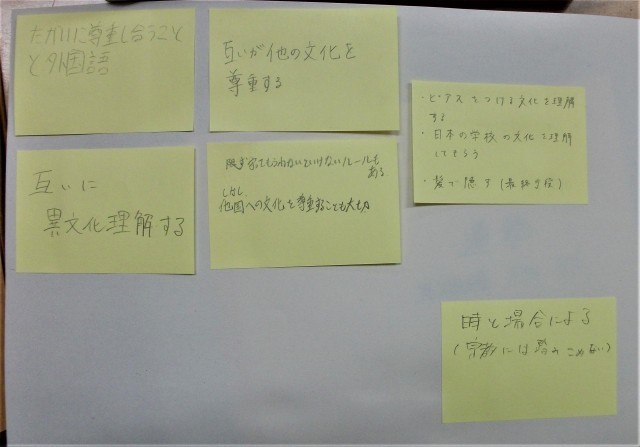 たがいに尊重し合うこと
と外国語
互いが他の文化を
尊重する
・ピアスをつける文化を理解
する
・日本の学校の文化を理解
してもらう
・髪で隠す(最終手段)
互いに
異文化理解する
いけないルールも
ある
しかし
他国への文化を尊重することも大切
時と場合による
(宗教には踏みこめない)